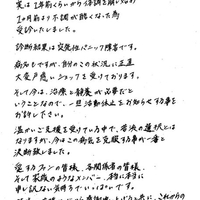 実は1年前くらいから体調を崩しはじめ
2ヶ月前より不調が酷くなった為
受診いたしました。
診断結果は突発性パニック障害です。
病名もですが、別のこの状況に正直
大変戸惑いショックを受けております。
そして今は、治療と静養が必要だ
ということなので、一旦活動休止をお知らせする事を
お許し下さい。
温かいご支援を受けていう中で、苦渋の選択とは
なりますが、今はこの病気を克服する事が一番と
決断致しました。
愛するファンの皆様、各関係者の皆様、
そして家族のようなメンバー、
申し訳ない気持ちでいっぱいです。